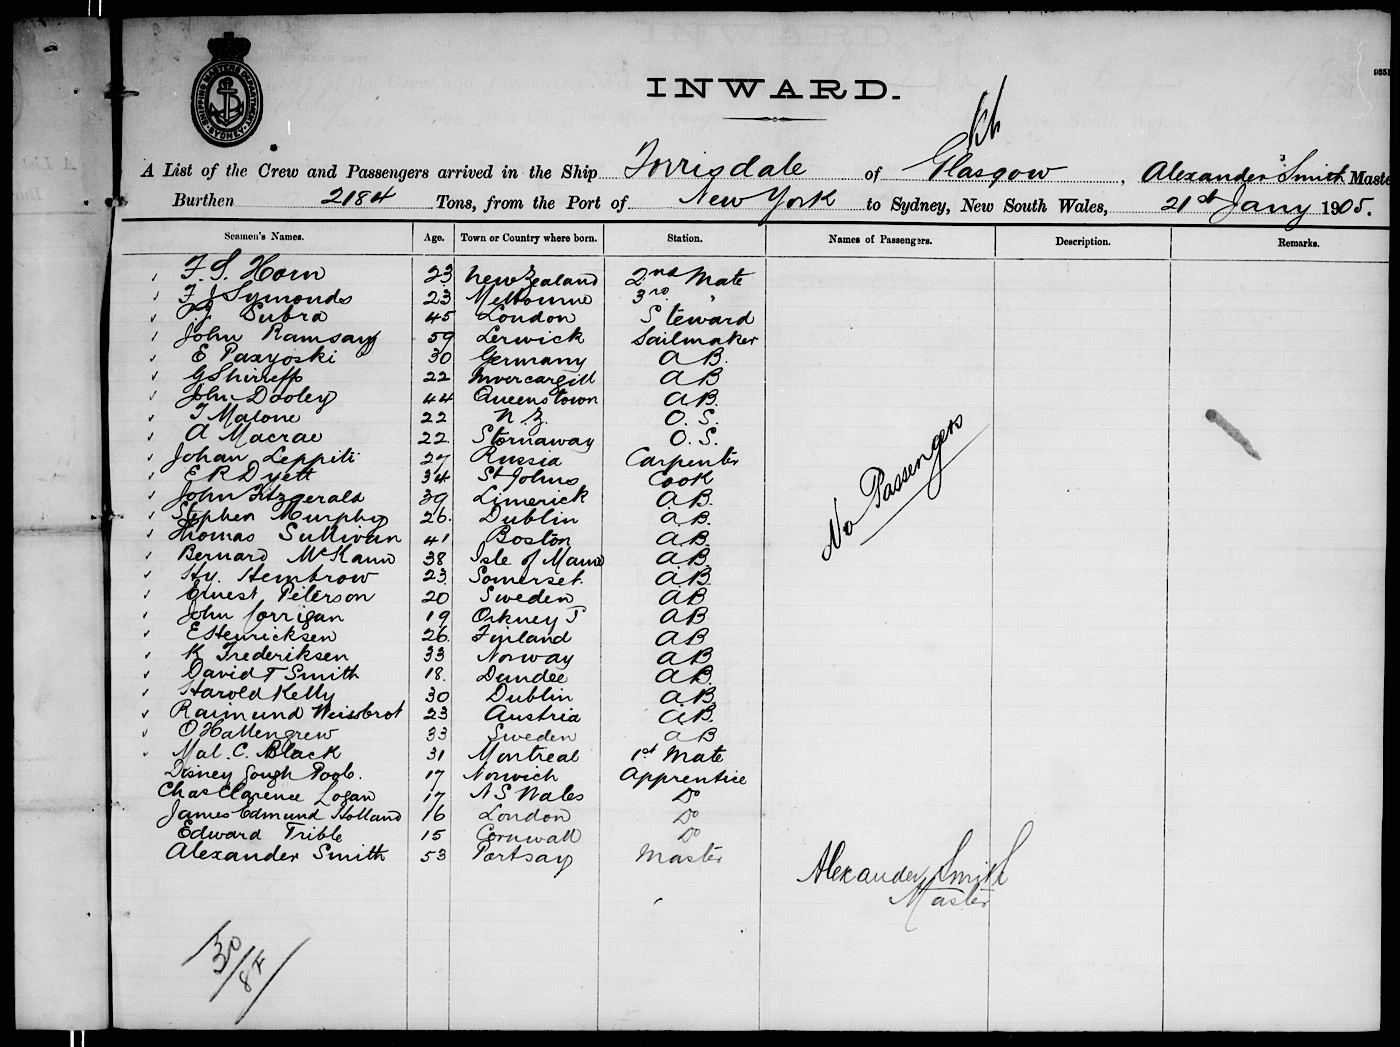 SHIPPING MASTERS DEPARTMENT SYDNEY
INWARD.
A List of the Crew and Passengers arrived in the Ship Torrisdale of Glasgow, Alexander Smith Maste
Burthen 2184 Tons, from the Port of New York to Sydney, New South Wales, 21st Jany 1905.
Seamen's Names. Age. Town or Country where born. Station. Names of Passengers. Description. Remarks.
F. S. Horn 23 New Zealand 2nd Mate
F J Symonds 23 Melbourne 3rd "
Subra 45 London Steward
John Ramsay 59 Lerwick Sailmaker
E Pazyoski 30 Germany A B.
G Shirreff 22 Invercargill A B
John Dooley 44 Queenstown A B.
T Malone 22 N. Z. O. S.
A Macrae 22 Stornaway O. S.
Johan Leppiti 27 Russia Carpenter
E R Dyett 34 St Johns Cook
John Fitzgerald 39 Limerick A B.
Stephen Murphy 26. Dublin A B.
Thomas Sullivan 41 Boston A B.
Bernard McKann 38 Isle of Mann A B.
Hy. Hembrow 23 Somerset A B.
Ernest Peterson 20 Sweden A B
John Corrigan 19 Orkney I A B
E Henricksen 26. Finland A B
K Frederiksen 33 Norway A B
David T Smith 18. Dundee A B.
Harold Kelly 30 Dublin A B.
Raimund Weissbrot 23 Austria A B.
O Hattengrew 33 Sweden A B
Mal. C. Black 31 Montreal 1st Mate
Disney Gough Poole. 17 Norwich Apprentice
Chas Clarence Logan 17 N S Wales Do
James Edmund Holland 16 London Do
Edward Trible 15 Cornwall Do
Alexander Smith 53 Portsay Master
No Passengers
Alexander Smith
Master
30